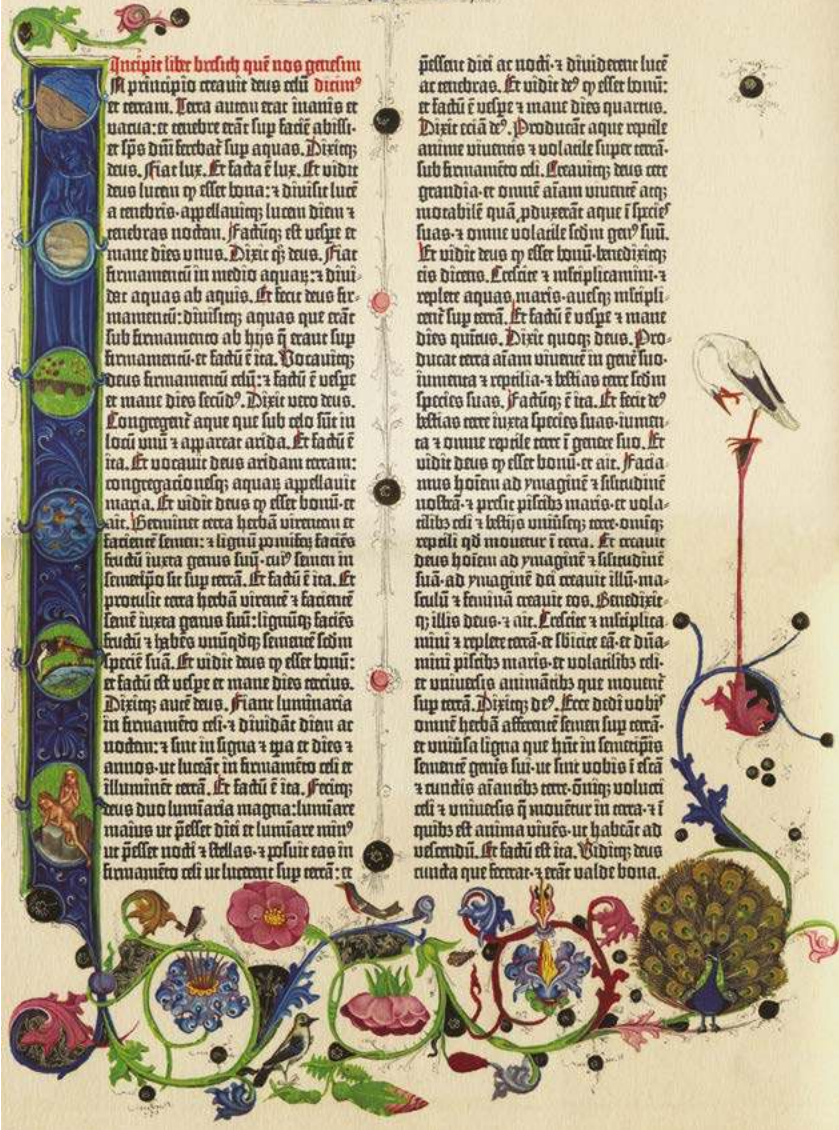 Incipit liber bresich quē nos genesim
N principio creauit deus celū dicimꝰ
et terram. Terra autem erat inanis et
vacua: et tenebre erāt suꝑ faciē abissi.
et sp̄s dn̄i ferebat̄ suꝑ aquas. Dixitqꝫ
deus. Fiat lux. Et facta ē lux. Et vidit
deus lucem ꝙ esset bona: ⁊ diuisit lucē
a tenebris. appellauitqꝫ lucem diem ⁊
tenebras noctem. Factūqꝫ est vespe et
mane dies vnus. Dixit qꝫ deus. Fiat
firmamentū in medio aquaꝝ: ⁊ diui-
dat aquas ab aquis. Et fecit deus fir-
mamentū: diuisitqꝫ aquas que erāt
sub firmamento ab hijs q̄ erant suꝑ
firmamentū. et factū ē ita. Vocauitqꝫ
deus firmamentū celū: ⁊ factū ē vespe
et mane dies secūdꝰ. Dixit vero deus.
Congregent̄ aque que sub celo sūt in
locū vnū ⁊ appareat arida. Et factū ē
ita. Et vocauit deus aridam terram:
congregacionesqꝫ aquaꝝ appellauit
maria. Et vidit deus ꝙ esset bonū. et
ait. Germinet terra herbā virentem et
facientē semen: ⁊ lignū pomifeꝝ faciēs
fructū iuxta genus suū. cuiꝰ semen in
semetip̄o sit suꝑ terrā. Et factū ē ita. Et
protulit terra herbā virentē ⁊ facientē
semē iuxta genus suū: lignūqꝫ faciēs
fructū ⁊ habēs vnūqdqꝫ sementē scdm
speciē suā. Et vidit deus ꝙ esset bonū:
et factū est vespe et mane dies tercius.
Dixitqꝫ autē deus. Fiant luminaria
in firmamēto celi. ⁊ diuidāt diem ac
noctem: ⁊ sint in signa ⁊ tp̄a et dies ⁊
annos. ut luceāt in firmamēto celi et
illuminēt terrā. Et factū ē ita. Fecitqꝫ
deus duo luminaria magna: lumīare
maius ut p̄esset diei et lumīare minꝰ
ut p̄esset nocti ⁊ stellas. ⁊ posuit eas in
firmamēto celi ut lucerent suꝑ terrā: et
p̄essent diei ac nocti. ⁊ diuiderent lucē
ac tenebras. Et vidit deꝰ ꝙ esset bonū:
et factū ē vespe ⁊ mane dies quartus.
Dixit eciā deꝰ. Producāt aque reptile
anime viuentis ⁊ volatile super terrā.
sub firmamēto celi. Creauitqꝫ deus cete
grandia. et omnē aīam viuentē atqꝫ
motabilē quā ꝓduxerāt aque ī species
suas. ⁊ omne volatile scdm genꝰ suū.
Et vidit deus ꝙ esset bonū. benedixitqꝫ
eis dicens. Crescite ⁊ mltiplicamini. ⁊
replete aquas maris. auesqꝫ mltipli-
cent̄ suꝑ terrā. Et factū ē vespe ⁊ mane
dies quītus. Dixit quoqꝫ deus. Pro-
ducat terra aīam viuentē in genē suo.
iumenta ⁊ reptilia. ⁊ bestias terre scdm
species suas. Factūqꝫ ē ita. Et fecit deꝰ
bestias terre iuxta species suas. iumen-
ta ⁊ omne reptile terre ī genere suo. Et
vidit deus ꝙ esset bonū. et ait. Facia-
mus hoīem ad ymaginē ⁊ silitudinē
nostrā. ⁊ presit piscibꝫ maris. et vola-
tilibꝫ celi ⁊ bestijs vniuseqꝫ terre. omīqꝫ
reptili qd mouetur ī terra. Et creauit
deus hoīem ad ymaginē ⁊ silitudinē
suā. ad ymaginē dei creauit illū. ma-
sculū ⁊ feminā creauit eos. Benedixit-
qꝫ illis deus. ⁊ ait. Crescite ⁊ mltiplica-
mini ⁊ replete terrā. et sbicite eā. et dn̄a-
mini piscibꝫ maris. et volatilibꝫ celi.
et vniuersis animātibꝫ que mouent̄
suꝑ terrā. Dixitqꝫ deꝰ. Ecce dedi vobis
omnē herbā afferentē semen suꝑ terrā.
et vniūsa ligna que hn̄t in semetip̄is
sementē genīs sui. ut sint vobis ī escā
⁊ cunctis aīantibꝫ terre. oīniqꝫ volucri
celi ⁊ vniuersis q̄ mouētur in terra. ⁊ ī
quibꝫ est anima viuēs. ut habeāt ad
vescendū. Et factū est ita. Viditqꝫ deus
cuncta que fecerat. ⁊ erāt valde bona.